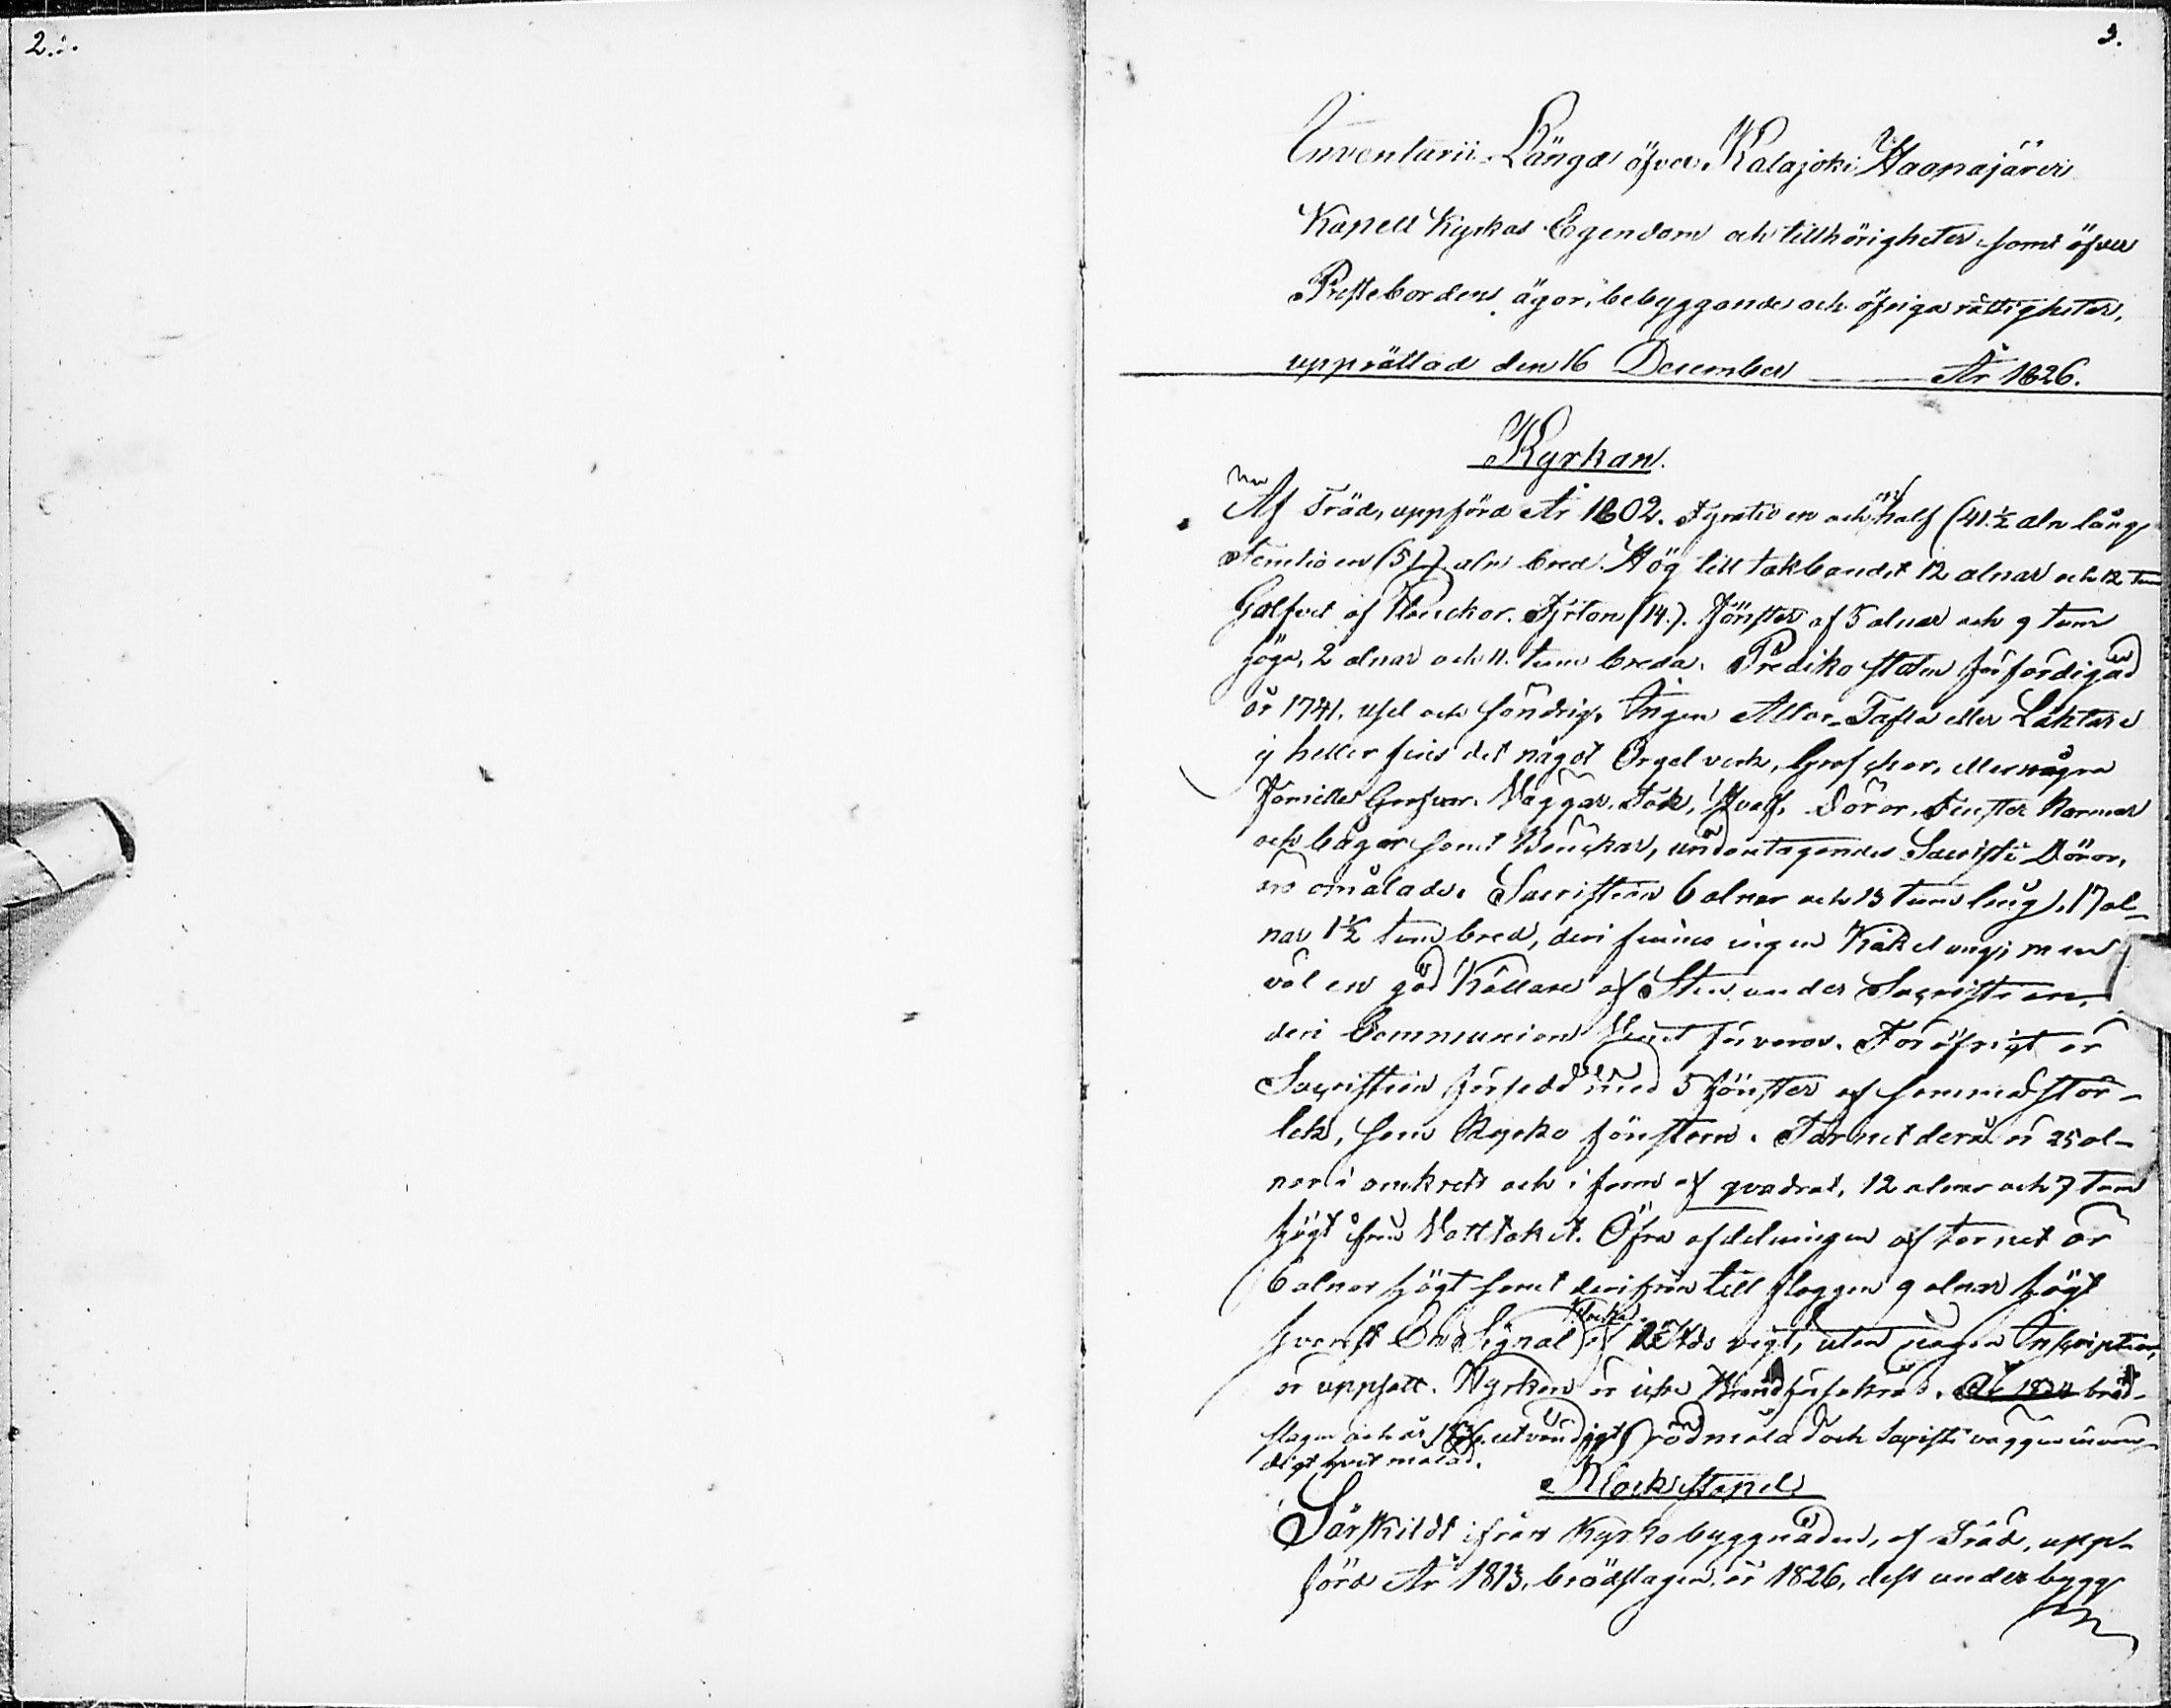 2.
3.
Inventarii-Längd öfver Kalajoki Haapajärvi
Kapell Kyrkas Egendom och tillhörigheter samt öfver
Prestebordens ägor, bebyggande och öfriga rättigheter,
upprättad den 16 December År 1826.
Kyrkan.
Af Träd, uppförd År 1802. Fyratio en och en half (41 ½ aln lång
Femtio en (51) aln bred. Hög till takbandet 12 alnar och 12 tum
Golfvet af Planckor. Fjrton (14.). Fönster af 5 alnar och 9 tum
höga, 2 alnar och 11. tum breda. Prediko stolen förfärdigad
år 1741. usel och söndrig. Ingen Altar-Tafla eller Läktare
ej heller fins det något Orgelverk, Grafchor, eller några
Familie Grafvar. Väggar, Tak, Hvalf, Döror, Fenster Karmar
och bågar samt Bänckar, undantagandes Sacristi Döror,
äro omålade. Sacristian 6 alnar och 13 tum lång, 17 al-
nar 1½ tum bred, deri finnes ingen Kakelungn; men
väl en god Källare af Sten under Sacristian,
deri Communion Vinet förvaras. För öfrigt är
Sacristian försedd med 3 fönster af samma stor-
lek, som Kyrko fönstren. Tornet derå är 25 al-
nar i omkrets och i form af qvadrat, 12 alnar och 7 tum
högt ifrån VattTaket. Öfra afdelningen af tornet är
6 alnar högt samt derifrån till flaggen 9 alnar högt
hvarest En Signal klocka af vigt, utan någon Inscription,
är uppsatt. Kyrkan är icke Brandförsäkrad. bräd-
slagen och år utvändigt rödmålad och Sacristi väggen invän-
digt hvit målad.
Klockstapel
Särskildt ifrån Kyrkobyggnaden, af Träd, upp-
förd År 1813, brädslagen år 1826, dess underbygg